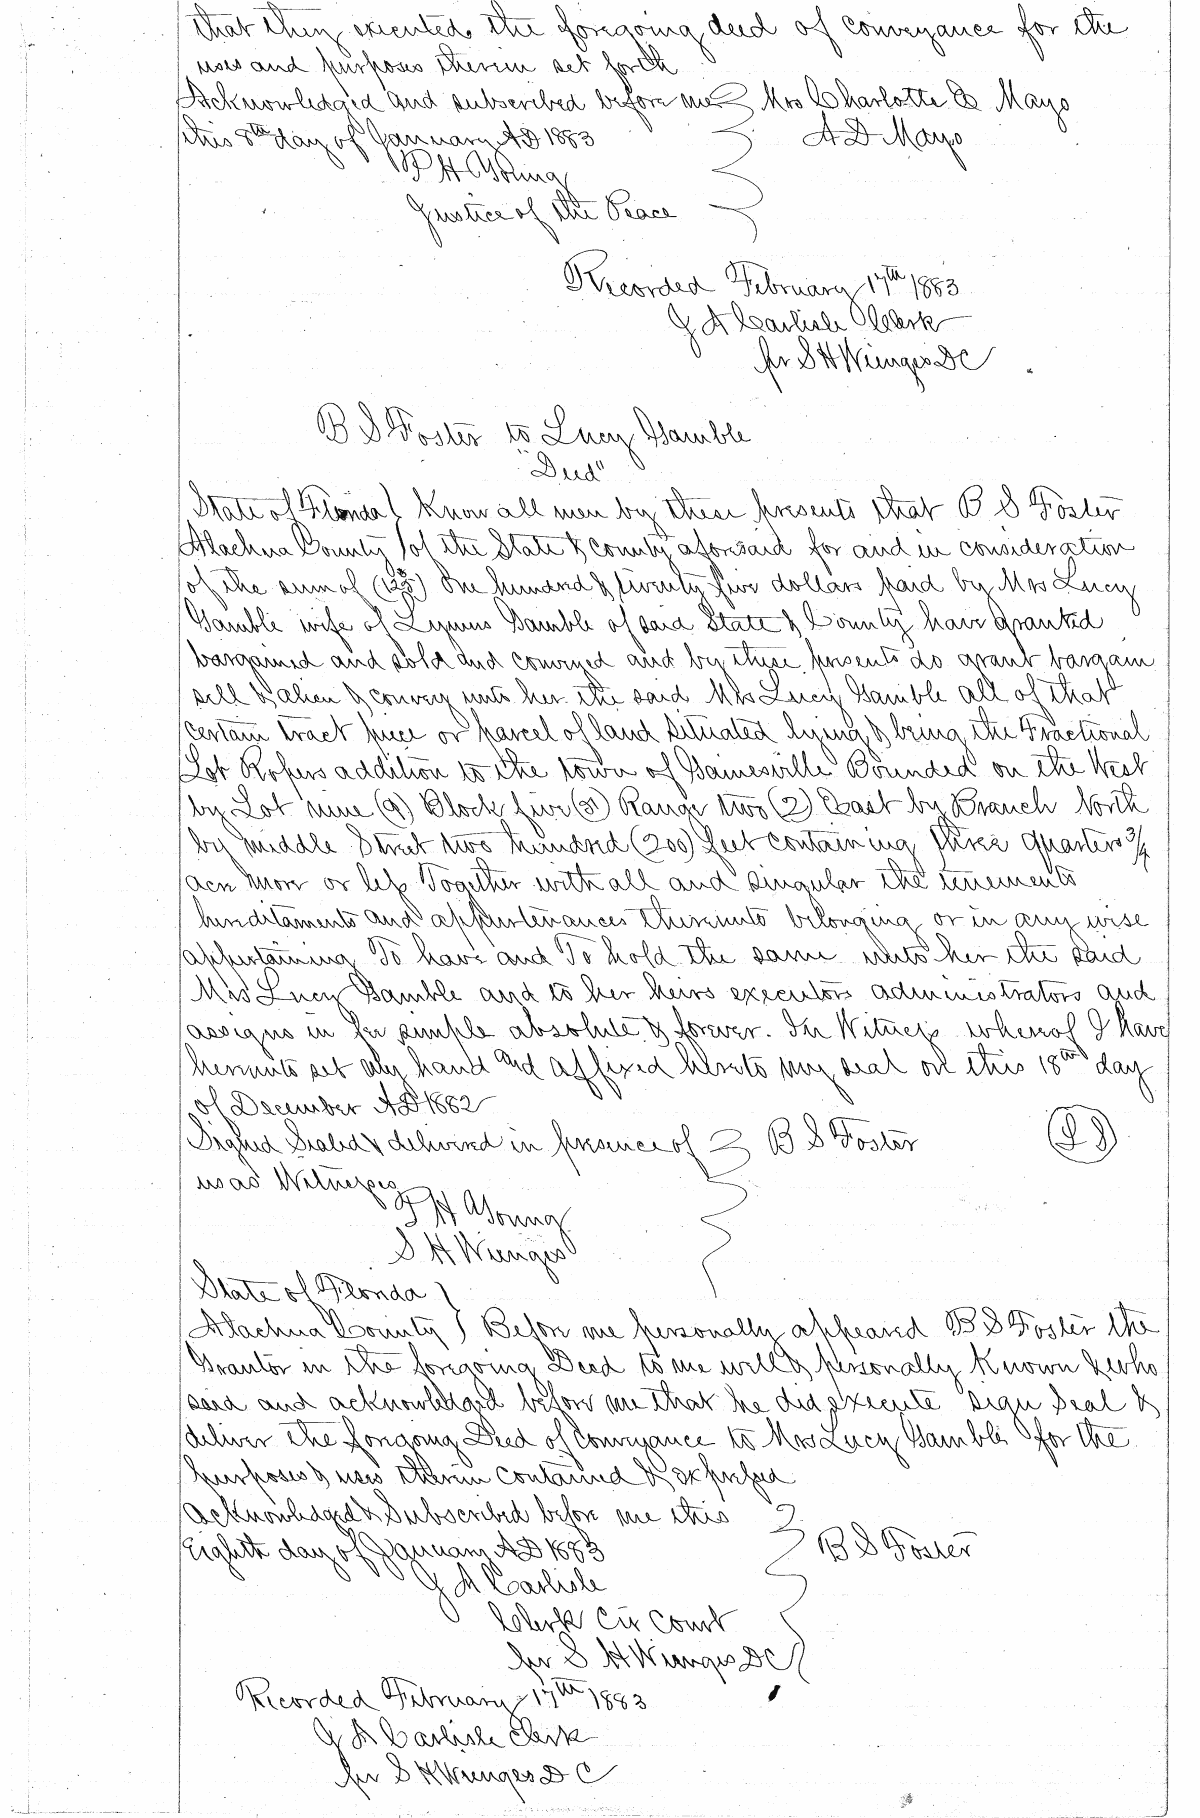 that they executed the foregoing deed of conveyance for the
uses and purposes therein set forth
Acknowledged and subscribed before me Mrs Charlotte E Mayo
this 8th day of January AD 1883 A D Mayo
P H Young
Justice of the Peace
Recorded February 17th 1883
J A Carlisle Clerk
pr S H Wienges DC
B S Foster to Lucy Gamble
"Deed"
State of Florida ) Know all men by these presents that B S Foster
Alachua County ) of the State & county aforesaid for and in consideration
of the sum of (125) One hundred & twenty five dollars paid by Mrs Lucy
Gamble wife of Lymus Gamble of said State & County have granted
bargained and sold and conveyed and by these presents do grant bargain
sell & alien & convey unto her the said Mrs Lucy Gamble all of that
certain tract piece or parcel of land situated lying & being the Fractional
Lot Ropers addition to the town of Gainesville Bounded on the West
by Lot nine (9) Block five (5) Range two (2) East by Branch North
by middle Street two hundred (200) feet containing three quarters 3/4
acre more or less Together with all and singular the tenements
hereditaments and appurtenances thereunto belonging or in any wise
appertaining To have and To hold the same unto her the said
Mrs Lucy Gamble and to her heirs executors administrators and
assigns in fee simple absolute & forever. In Witness whereof I have
hereunto set my hand and affixed hereto my seal on this 18th day
of December AD 1882
Signed Sealed & delivered in presence of B S Foster
us as Witnesses
P H Young
S H Wienges
State of Florida )
Alachua County ) Before me personally appeared B S Foster the
Grantor in the foregoing Deed to me well & personally Known & who
said and acknowledged before me that he did execute sign Seal &
deliver the foregoing Deed of Conveyance to Mrs Lucy Gamble for the
purposes & uses therein contained & expressed
Acknowledged & Subscribed before me this
Eighth day of January AD 1883 B S Foster
J A Carlisle
Clerk Cir Court
pr S H Wienges DC
Recorded February 17th 1883
J A Carlisle Clerk
pr S H Wienges D C